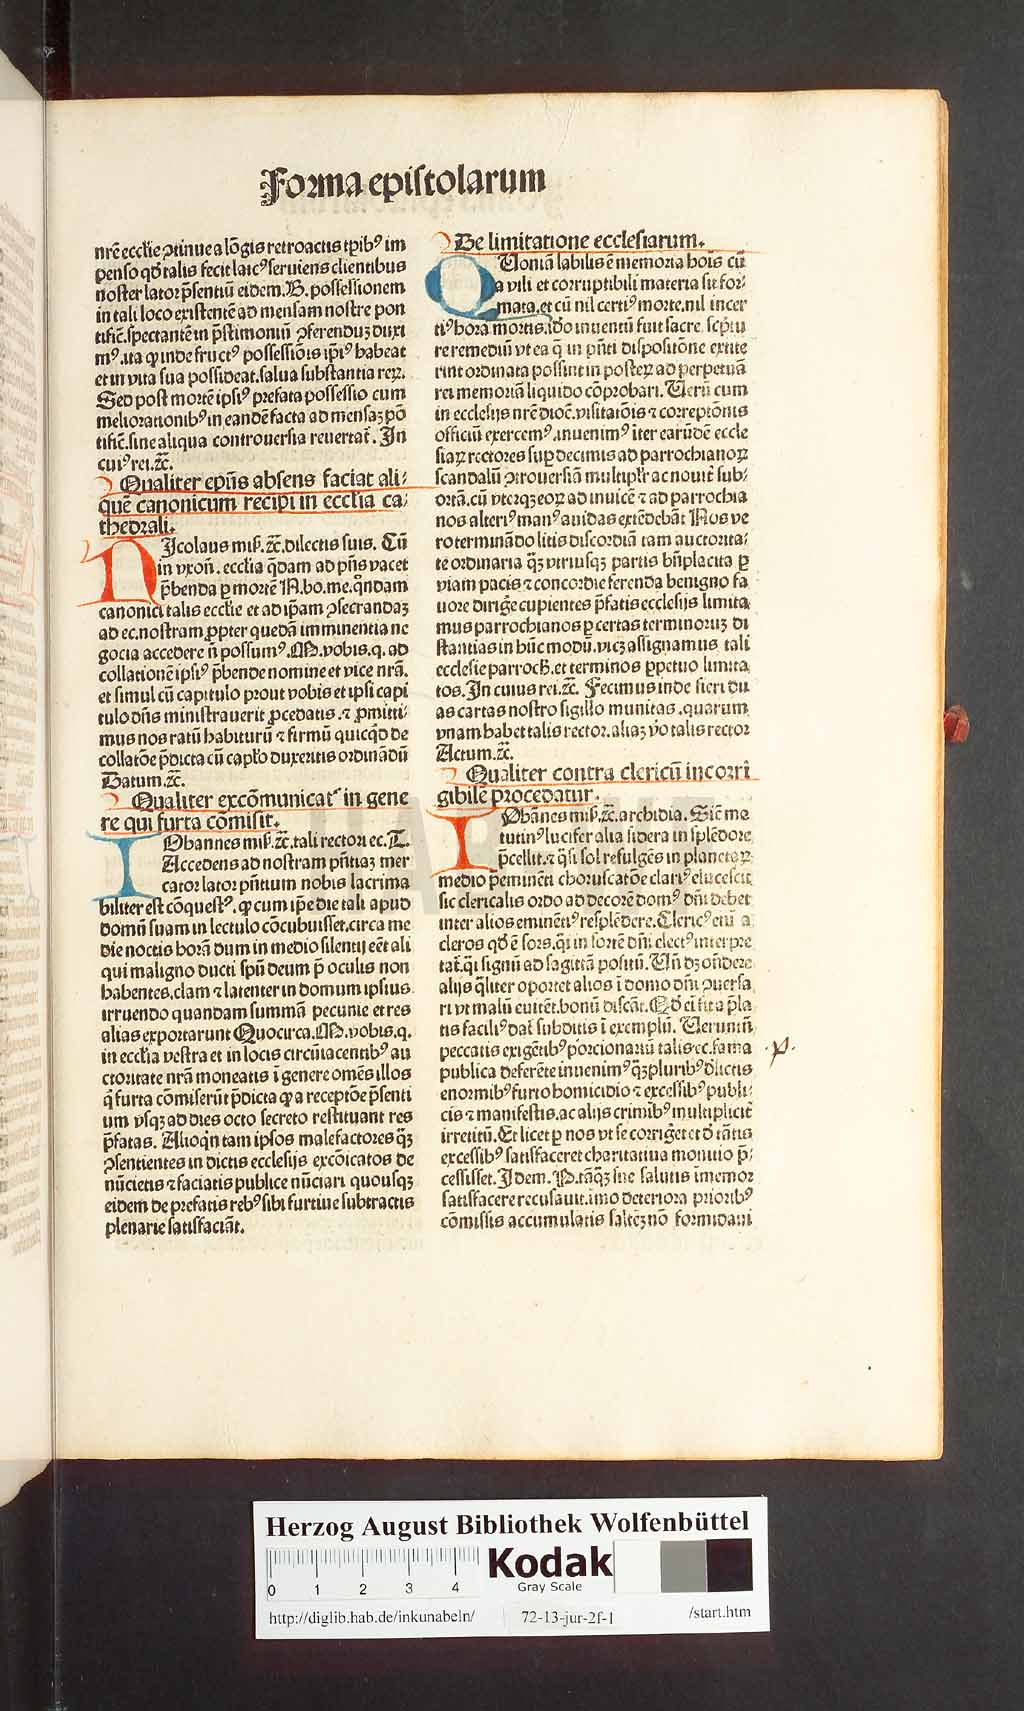 Forma epistolarum
nr̄e eccl̓ie ꝯtinue a lōgis retroactis tp̄ibꝰ im
penso qđ talis fecit laicꝰ seruiens clientibus
noster lator p̄sentiū eidem .B. possessionem
in tali loco existentē ad mensam nostre pon
tific̄. spectantē in p̄stimoniū ꝯferenduꝫ duxi
mꝰ. ita ꝙ inde fructꝰ possessiōis ip̄iꝰ habeat
et in vita sua possideat. salua substantia reꝝ.
Sed post mortē ipsiꝰ prefata possessio cum
meliorationibꝰ in eandē facta ad mensaꝫ pō
tific̄. sine aliqua controuersia reuertat̄. In
cuiꝰ rei. ⁊c̄.
Qualiter ep̄us absens faciat ali⸗
quē canonicum recipi in eccl̓ia ca⸗
thedrali.
NIcolaus mis̄. ⁊c̄. dilectis suis. Cū
in vxoń. ecclia q̄dam ad p̄ns vacet
p̄benda ꝑ mortē N. bo. me. q̄ndam
canonici talis eccl̓ie et ad ip̄am ꝯsecrandaꝫ
ad ec. nostram ꝓpter quedā imminentia ne
gocia accedere n̄ possumꝰ. M. vobis. q. ad
collationē ipsiꝰ p̄bende nomine et vice nr̄a.
et simul cū capitulo prout vobis et ipsi capi
tulo dn̄s ministrauerit ꝓcedatis. ⁊ ꝓmitti⸗
mus nos ratū habiturū ⁊ firmū quicq̄d de
collatōe p̄dicta cū capl̓o duxeritis ordinādū
Datum. ⁊c̄.
Qualiter excōmunicat̄ in gene
re qui furta cōmisit.
IOhannes mis̄. ⁊c̄. tali rectori ec. T.
Accedens ad nostram pn̄tiaꝫ mer
cator lator pn̄tium nobis lacrima
biliter est cōquestꝰ. ꝙ cum ip̄e die tali apud
domū suam in lectulo cōcubuisset. circa me
die noctis horā dum in medio silentij eēt ali
qui maligno ducti spū deum p̄ oculis non
habentes. clam ⁊ latenter in domum ipsius
irruendo quandam summā pecunie et res
alias exportarunt Quocirca. M. vobis. q.
in eccl̓ia vestra et in locis circūiacentibꝰ au
ctoritate nr̄a moneatis ī genere omēs illos
q̄ furta cōmiserūt p̄dicta ꝙ a receptōe p̄senti
um vsqꝫ ad dies octo secreto restituant res
p̄fatas. Alioqͥn tam ipsos malefactores q̄ꝫ
ꝯsentientes in dictis ecclesijs excōicatos de
nūcietis ⁊ faciatis publice nūciari quousqꝫ
eidem de prefatis rebꝰ sibi furtiue subtractis
plenarie satisfaciāt.
De limitatione ecclesiarum.
QUoniā labilis ē memoria hoīs cū
a vili et corruptibili materia sit for⸗
mata. et cū nil certiꝰ morte. nil incer
tiꝰ hora mortis. iđo inuentū fuit sacre scp̄tu
re remediū vt ea q̄ in pn̄ti dispositōne extite
rint ordinata possint in posteꝝ ad perpetuā
rei memoriā liquido cōprobari. Uerū cum
in ecclesijs nr̄e dioc̄. visitatiōis ⁊ correptōnis
officiū exercemꝰ. inuenimꝰ īter earūdē eccle
siaꝝ rectores suꝑ decimis ad parrochianoꝝ
scandalū ꝯtrouersiā multipl̓r ac nouit̄ sub⸗
ortā. cū vterqꝫ eoꝝ ad inuicē ⁊ ad parrochia
nos alteriꝰ manꝰ auidas extēdebāt Nos ve
ro terminādo litis discordiā tam auctorita⸗
te ordinaria q̄ꝫ vtriusqꝫ partis bn̄placita ꝑ
viam pacis ⁊ concordie ferenda benigno fa
uore dirige cupientes p̄fatis ecclesijs limita
mus parrochianos ꝑ certas terminoruꝫ di
stantias in hūc modū. vicꝫ assignamus tali
ecclesie parroch̄. et terminos ꝑpetuo limita
tos. In cuius rei. ⁊c̄. Fecimus inde fieri du
as cartas nostro sigillo munitas. quarum
vnam habet talis rector. aliaꝫ v̊o talis rector
Actum. ⁊c̄.
Qualiter contra clericū incorri
gibilē procedatur.
IOhānes mis̄. ⁊c̄. archidia. Sic̄ ma
tutinꝰ lucifer alia sidera in splēdore
p̄cellit. ⁊ q̄si sol refulgēs in planetaꝝ
medio p̄eminēti choruscatōe clariꝰ elucescit
sic clericalis ordo ad decorē domꝰ dn̄i debet
inter alios eminētiꝰ resplēdere. Clericꝰ enī a
cleros qđ ē sors. q̄si in sortē dn̄i electꝰ interpre
tat̄. q̄si signū ad sagittā positū. Uñ dꝫ on̄dere
alijs q̄liter oportet alios ī domo dn̄i ꝯuersa
ri vt malū euitēt. bonū discāt.
peccatis exigētibꝰ porcionariū talis ec. fama
publica deferēte inuenimꝰ q̄ꝫpluribꝰ d̓lictis
enormibꝰ furto homicidio ⁊ excessibꝰ publi⸗
cis ⁊ manifestis. ac alijs crimībꝰ multiplicit̄
irretitū. Et licet ꝑ nos vt se corrigēt et d̓ tātis
excessibꝰ satisfaceret charitatiua monitio p̄⸗
cessisset. Idem. P. tāq̄ꝫ sue salutis īmemor
satisfacere recusauit. imo deteriora prioribꝰ
cōmissis accumulatis salteꝫ nō formidaui
Herzog August Bibliothek Wolfenbüttel
0 1 2 3 4
Kodak
Gray Scale
http://diglib.hab.de/inkunabeln/ 72-13-jur-2f-1 /start.htm